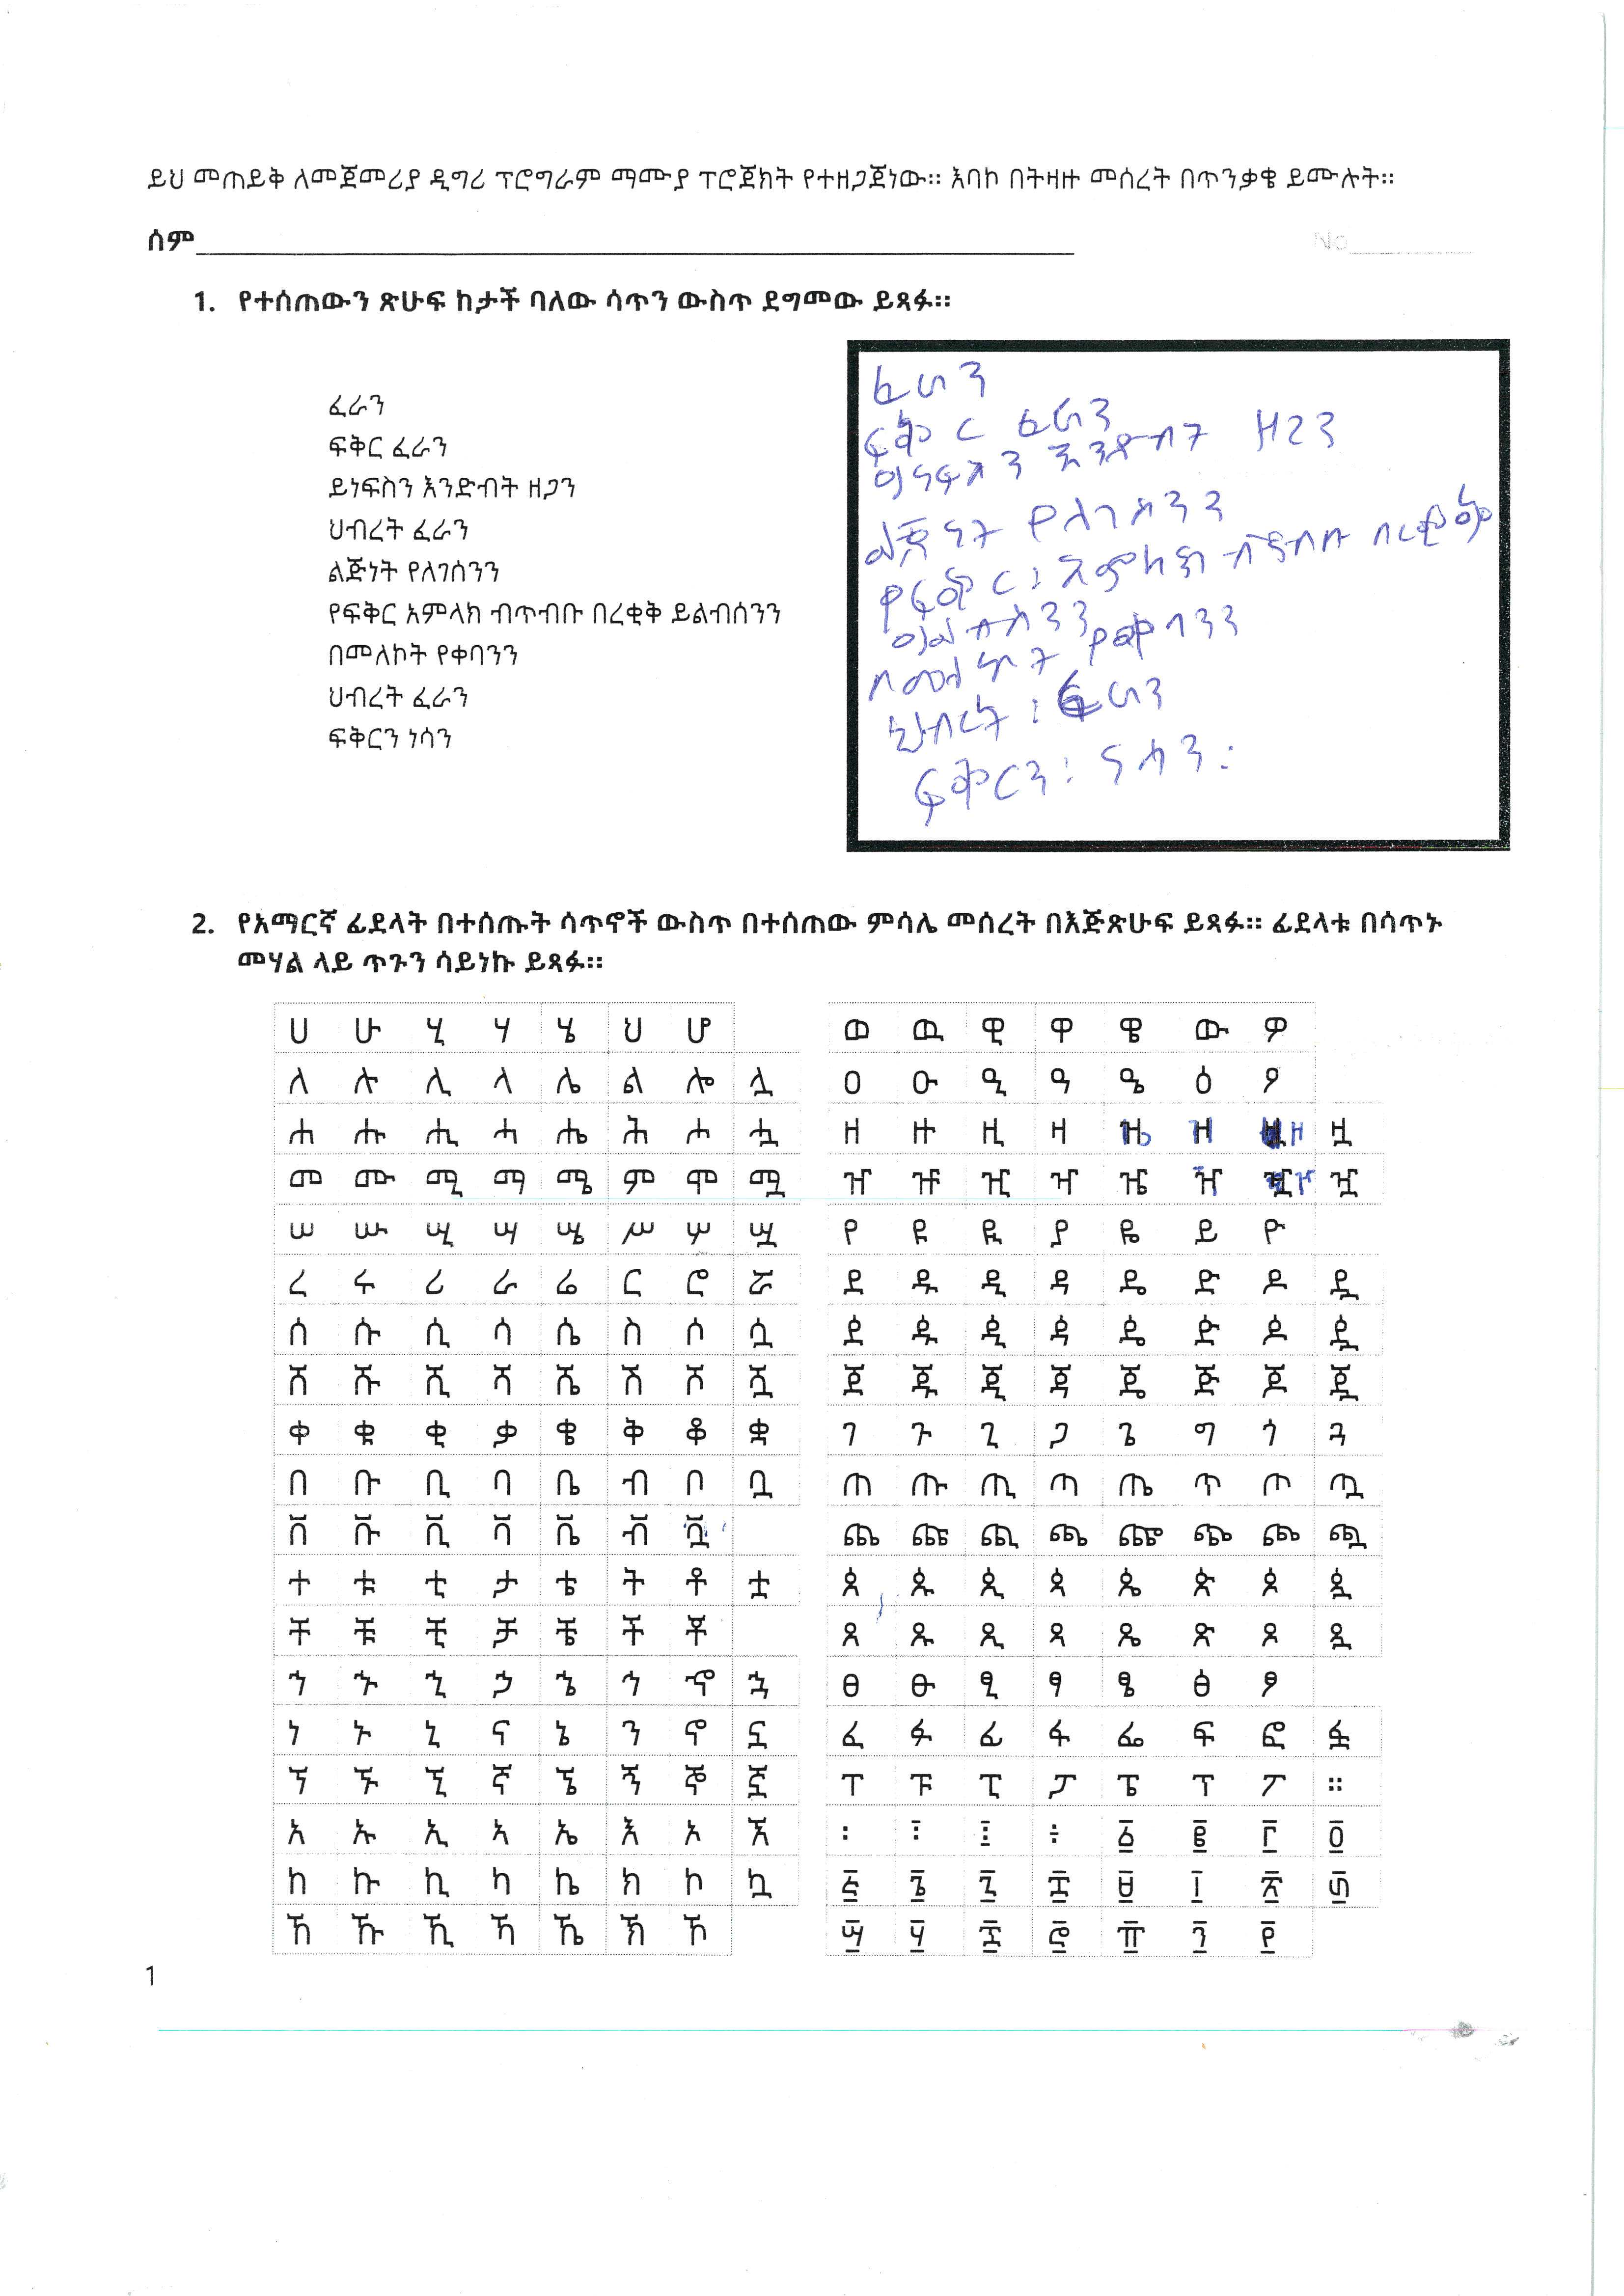 ይህ መጠይቅ ለመጀመሪያ ዲግሪ ፕሮግራም ማሙያ ፕሮጀክት የተዘጋጀነው። እባኮ በትዛዙ መሰረት በጥንቃቄ ይሙሉት።
ሰም
No
1. የተሰጠውን ጽሁፍ ከታች ባለው ሳጥን ውስጥ ደግመው ይጻፉ።
ፈራን
ፍቅር ፈራን
ይነፍስን እንድብት ዘጋን
ህብረት ፈራን
ልጅነት የለገሰንን
የፍቅር አምላክ ብጥብቡ በረቂቅ ይልብሰንን
በመለኮት የቀባንን
ህብረት ፈራን
ፍቅርን ነሳን
ፈራን
ፍቅር ፈራን
ዘጋን
ልጅነት የለገሰንን
የፍቅር፡ አምላክ በረቂቅ
በመለኮት የቀባንን
ህብረት፡ ፈራን
ፍቅርን፡ ነሳን፡
2. የአማርኛ ፊደላት በተሰጡት ሳጥኖች ውስጥ በተሰጠው ምሳሌ መሰረት በእጅጽሁፍ ይጻፉ። ፊደላቱ በሳጥኑ
መሃል ላይ ጥጉን ሳይነኩ ይጻፉ።
ሀ ሁ ሂ ሃ ሄ ህ ሆ
ለ ሉ ሊ ላ ሌ ል ሎ ሏ
ሐ ሑ ሒ ሓ ሔ ሕ ሖ ሗ
መ ሙ ሚ ማ ሜ ም ሞ ሟ
ሠ ሡ ሢ ሣ ሤ ሥ ሦ ሧ
ረ ሩ ሪ ራ ሬ ር ሮ ሯ
ሰ ሱ ሲ ሳ ሴ ስ ሶ ሷ
ሸ ሹ ሺ ሻ ሼ ሽ ሾ ሿ
ቀ ቁ ቂ ቃ ቄ ቅ ቆ ቋ
በ ቡ ቢ ባ ቤ ብ ቦ ቧ
ቨ ቩ ቪ ቫ ቬ ቭ ቯ
ተ ቱ ቲ ታ ቴ ት ቶ ቷ
ቸ ቹ ቺ ቻ ቼ ች ቾ
ኀ ኁ ኂ ኃ ኄ ኅ ኆ ኋ
ነ ኑ ኒ ና ኔ ን ኖ ኗ
ኘ ኙ ኚ ኛ ኜ ኝ ኞ ኟ
አ ኡ ኢ ኣ ኤ እ ኦ ኧ
ከ ኩ ኪ ካ ኬ ክ ኮ ኳ
ኸ ኹ ኺ ኻ ኼ ኽ ኾ
ወ ዉ ዊ ዋ ዌ ው ዎ
ዐ ዑ ዒ ዓ ዔ ዕ ዖ
ዘ ዙ ዚ ዛ ዟ
ዠ ዡ ዢ ዣ ዤ ዧ
የ ዩ ዪ ያ ዬ ይ ዮ
ደ ዱ ዲ ዳ ዴ ድ ዶ ዷ
ዸ ዹ ዺ ዻ ዼ ዽ ዾ ዿ
ጀ ጁ ጂ ጃ ጄ ጅ ጆ ጇ
ገ ጉ ጊ ጋ ጌ ግ ጎ ጓ
ጠ ጡ ጢ ጣ ጤ ጥ ጦ ጧ
ጨ ጩ ጪ ጫ ጬ ጭ ጮ ጯ
ጰ ጱ ጲ ጳ ጴ ጵ ጶ ጷ
ጸ ጹ ጺ ጻ ጼ ጽ ጾ ጿ
ፀ ፁ ፂ ፃ ፄ ፅ ፆ
ፈ ፉ ፊ ፋ ፌ ፍ ፎ ፏ
ፐ ፑ ፒ ፓ ፔ ፕ ፖ ።
፡ ፣ ፤ ፥ ፩ ፪ ፫ ፬
፭ ፮ ፯ ፰ ፱ ፲ ፳ ፴
፵ ፶ ፷ ፸ ፹ ፺ ፻
1